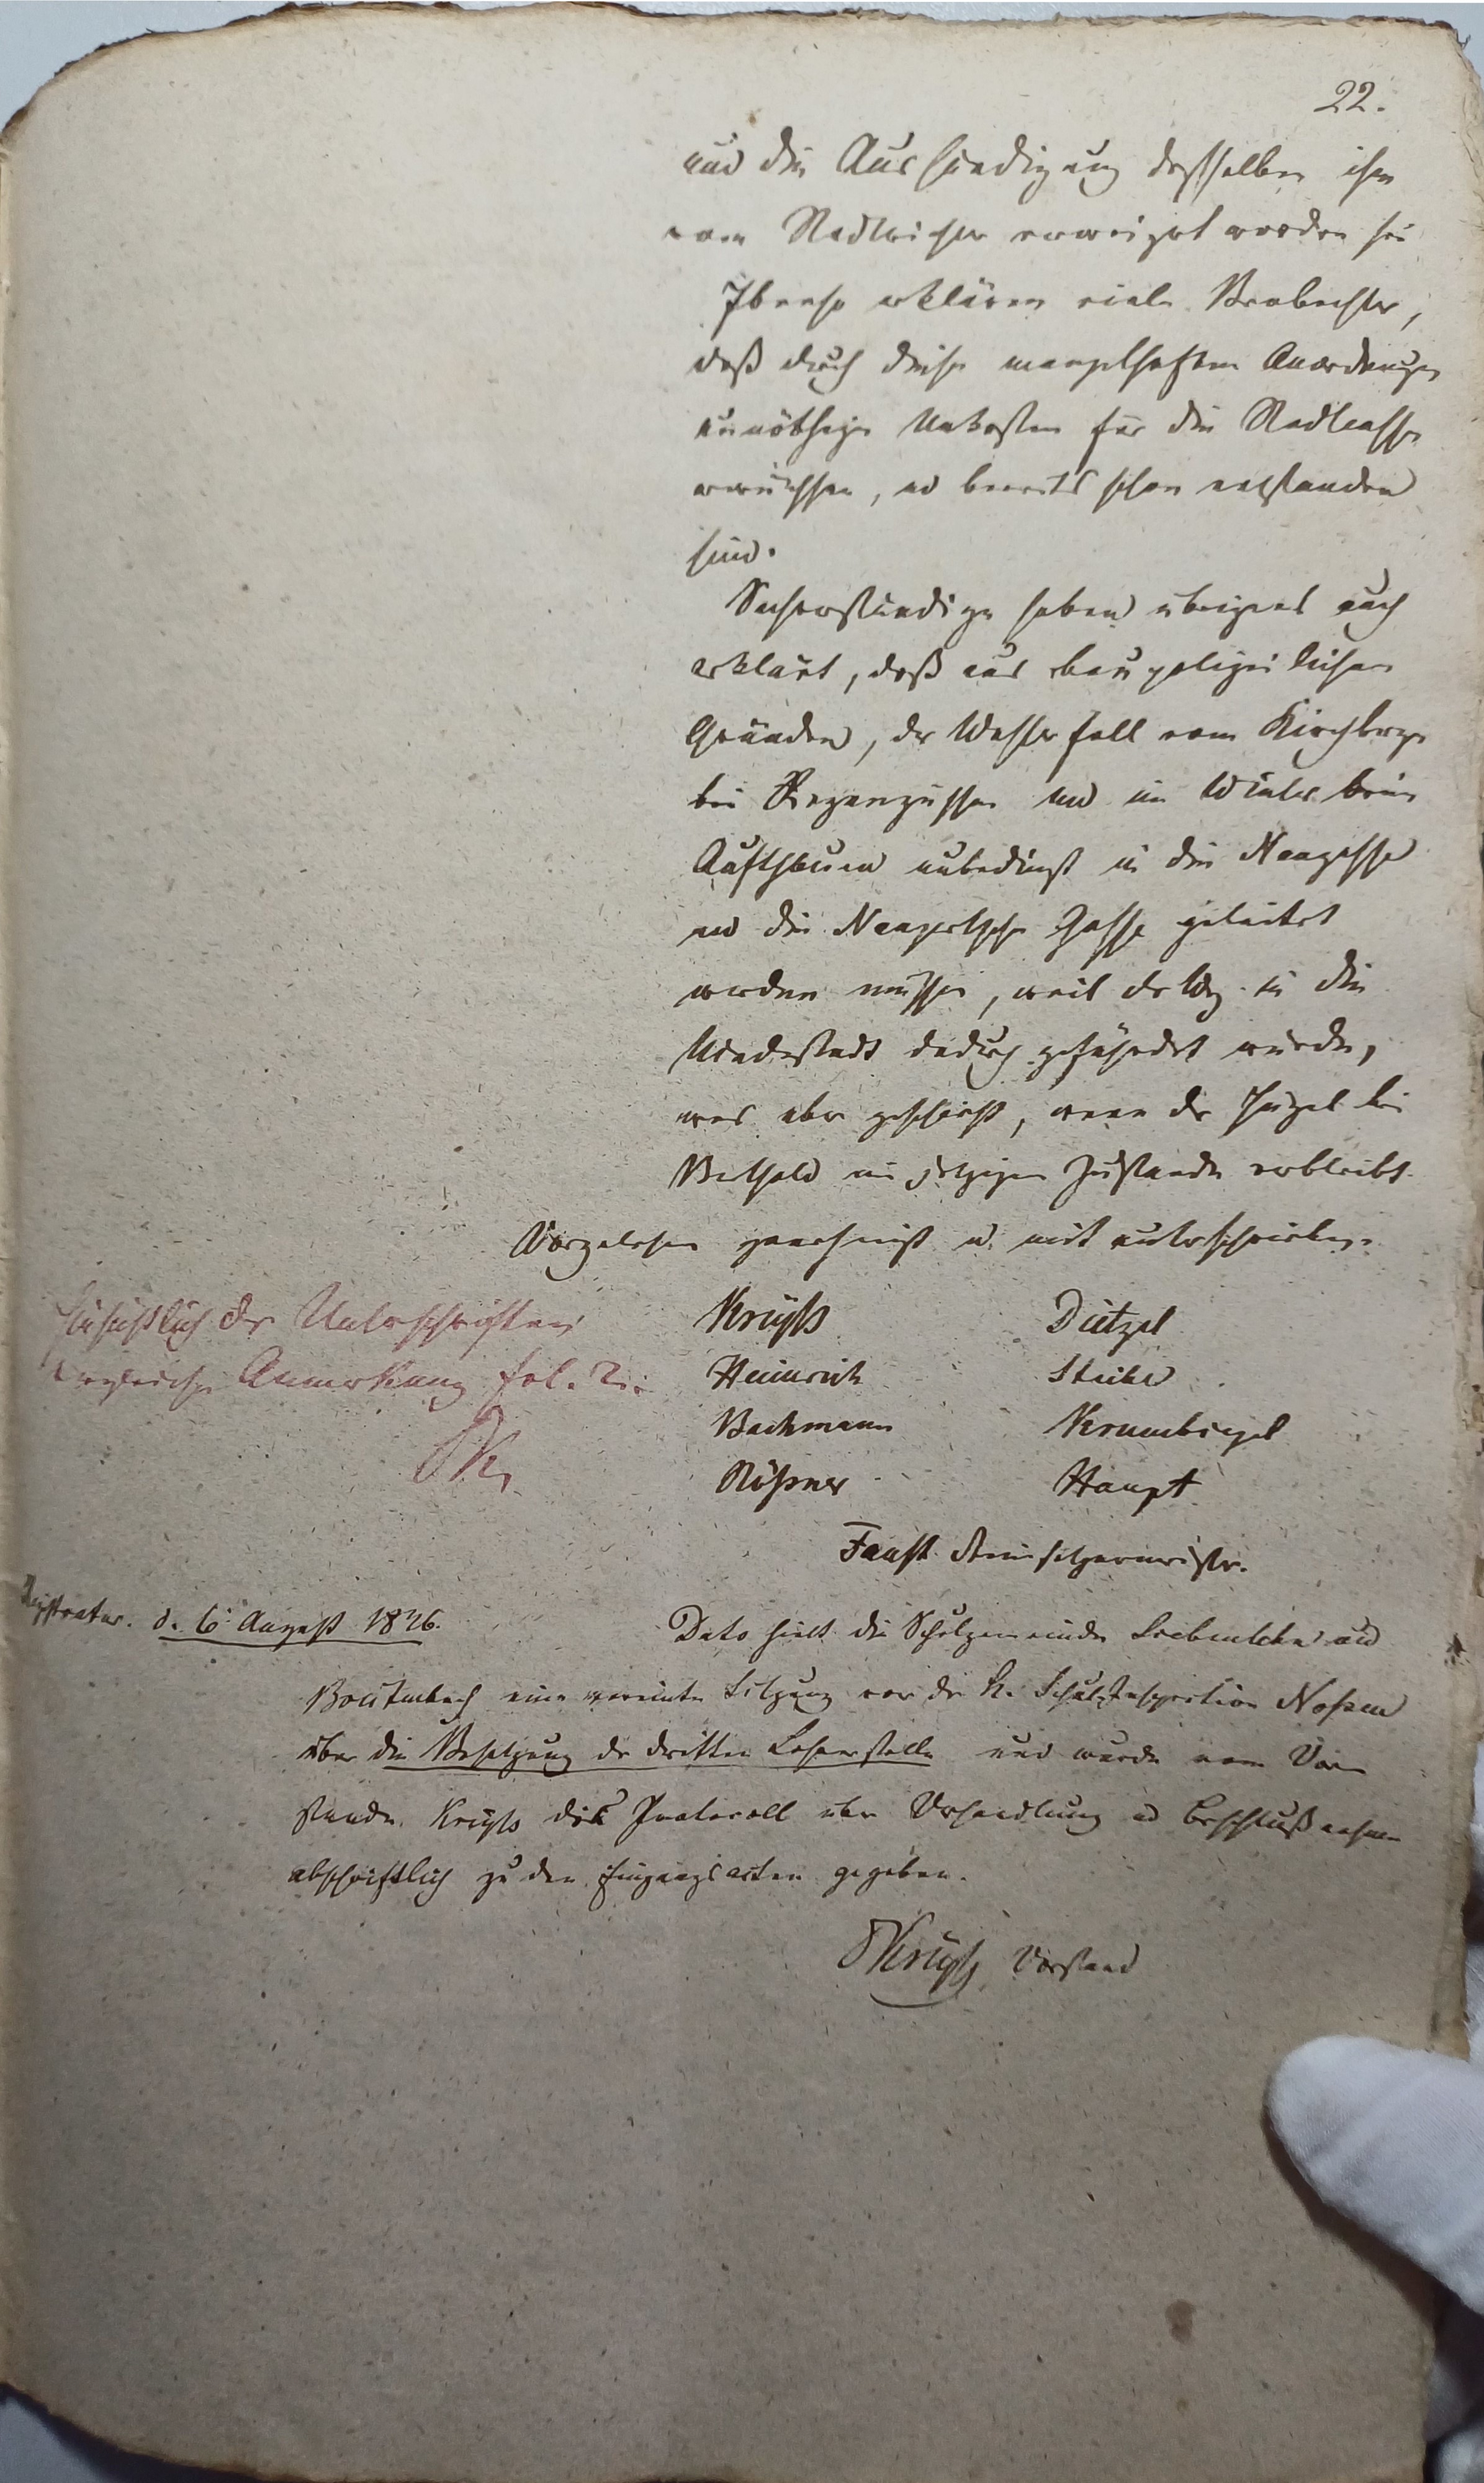 22.
und die Aushändigung desselben ihm
vom Stadtrichter verweigert worden sei
Ebenso erklären viele Beobachter,
daß durch diese mangelhaften Anordnungen
unnöthige Unkosten für die Stadtcasse
erwüchsen, und bereits schon entstanden
sind.
Sachverständige haben übrigens auch
erklärt, daß aus baupolizeilichen
Gründen, der Wasserfall vom Kirchberge
bei Regengüssen und im Winter beim
Aufthauen unbedingt in die
und die Gasse geleitet
werden müsse, weil der Weg in die
Niederstadt dadurch gefährdet würde,
was aber geschieht, wenn der Hügel bei
Berthold im jetzigen Zustande verbleibt.
Vorgelesen genehmigt u. mit unterschrieben.
Hinsichtlich der Unterschriften
vergleiche Anmerkung fol.
Kreyß Dietzel
Heinrich
Bachmann Krumbiegel
Rößner Haupt
Faust
Registratur. d. 6. August 1846.
Dato hielt die Schulgemeinde Siebenlehn und
eine vereinte Sitzung vor der K. Schul-Inspection Nossen
über die Besetzung der dritten Lehrerstelle und wurde vom Vor-
stande Kreyß das Protocoll über Verhandlung und Beschlußnahme
abschriftlich zu den Eingangsacten gegeben.
Kreyß Vorstand